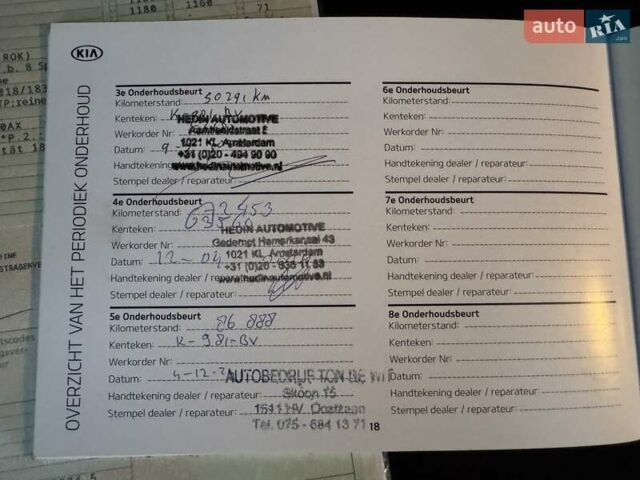 auto RIA .com
1180 1160
71
ROK)
.b. 8 Sp
018/183
TP:reine
0AX
*P.2..
tät 18
KIA
OVERZICHT VAN HET PERIODIEK ONDERHOUD
3e Onderhoudsbeurt
Kilometerstand: 50291 KM
Kenteken:
HEDIN AUTOMOTIVE
Werkorder Nr.:
Datum: 9-
1021 KL Amsterdam
+31 (0)20 - 494 90 90
Handtekening
www.hedinautomotive.nl
Stempel dealer / reparateur:
4e Onderhoudsbeurt
Kilometerstand: 72453
Kenteken:
HEDIN AUTOMOTIVE
Werkorder Nr.:
Gedempt Hamerkanaal 43
Datum: 12-04
1021 KL Amsterdam
Handtekening dealer / reparateur:
www.hedinautomotive.nl
Stempel dealer / reparateur:
5e Onderhoudsbeurt
Kilometerstand: 86 888
Kenteken: K-981-BV
Werkorder Nr.:
Datum: 4-12-2
AUTOBEDRIJF TON DE WIT
Handtekening dealer / reparateur:
Skoon 15
Stempel dealer / reparateur:
1511 HV Oostzaan
Tel. 075 - 684 13 71
18
6e Onderhoudsbeurt
Kilometerstand:
Kenteken:
Werkorder Nr.:
Datum:
Handtekening dealer / reparateur:
Stempel dealer / reparateur:
7e Onderhoudsbeurt
Kilometerstand:
Kenteken:
Werkorder Nr.:
Datum:
Handtekening dealer / reparateur:
Stempel dealer / reparateur:
8e Onderhoudsbeurt
Kilometerstand:
Kenteken:
Werkorder Nr.:
Datum:
Handtekening dealer / reparateur:
Stempel dealer / reparateur: